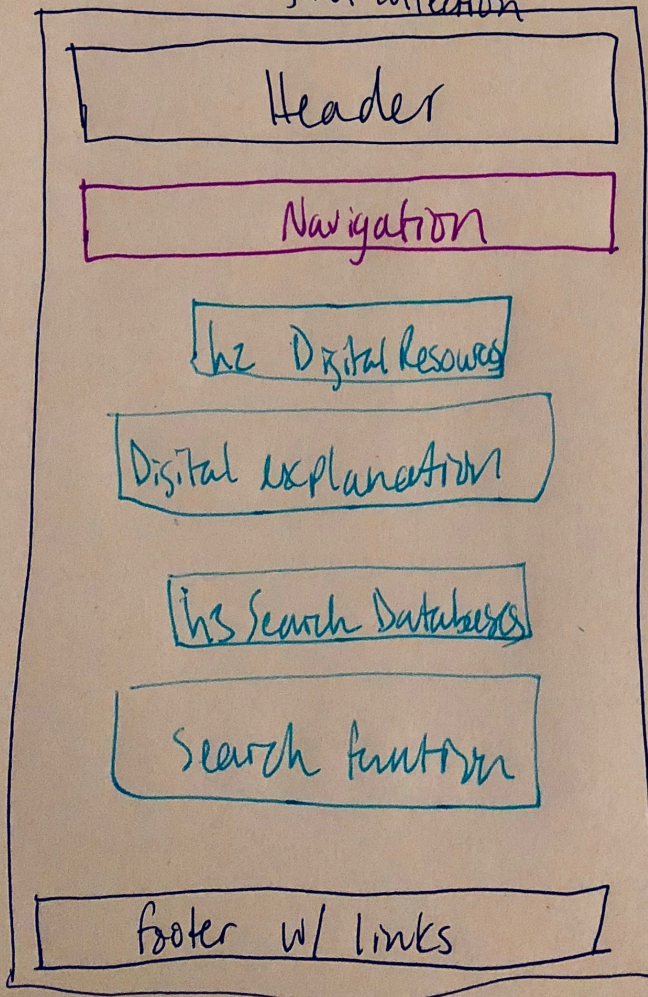 Collection
Header
Navigation
h2 Digital Resources
Digital explanation
h3 Search Databases
Search function
footer w/ links